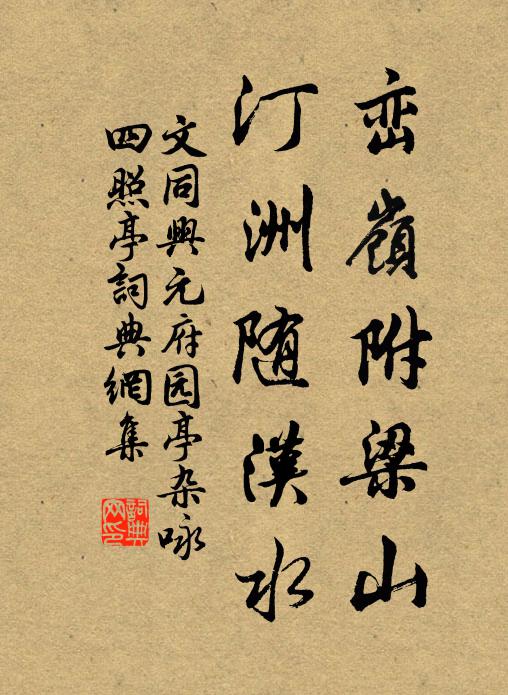 峦嶺附梁山
汀洲随漢水
文同興元府园亭杂咏
四照亭詞典網集
詞典网印